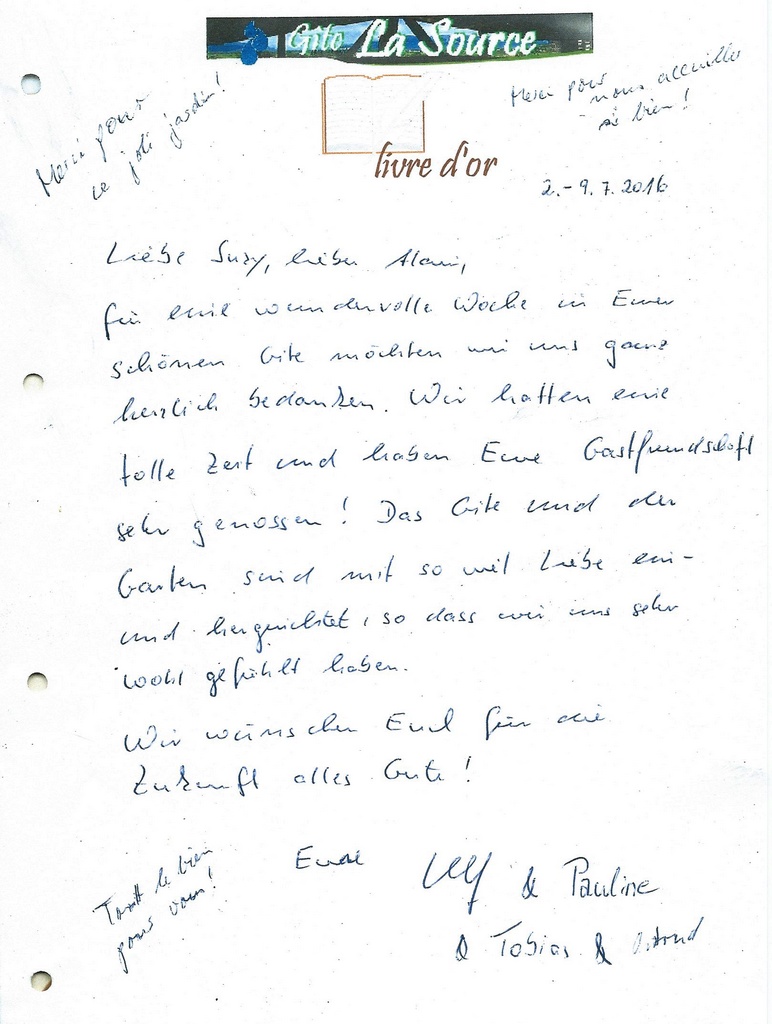 Gite La Source
Merci pour
ce joli jardin!
Merci pour
nous accueillir
si bien!
livre d'or
2.-9.7.2016
Liebe Suzy, lieber Alain,
für eine wundervolle Woche in Eurer
schönen Gite möchten wir uns ganz
herzlich bedanken. Wir hatten eine
tolle Zeit und haben Eure Gastfreundschaft
sehr genossen! Das Gite und der
Garten sind mit so viel Liebe ein-
und hergerichtet, so dass wir uns sehr
wohl gefühlt haben.
Wir wünschen Euch für die
Zukunft alles Gute!
Tout le bien
pour vous!
Eure
Ulf & Pauline
& Tobias & Astrid